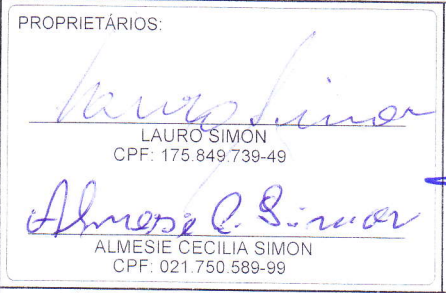 PROPRIETÁRIOS:
Lauro Simon
LAURO SIMON
CPF: 175.849.739-49
Almesie C. Simon
ALMESIE CECILIA SIMON
CPF: 021.750.589-99